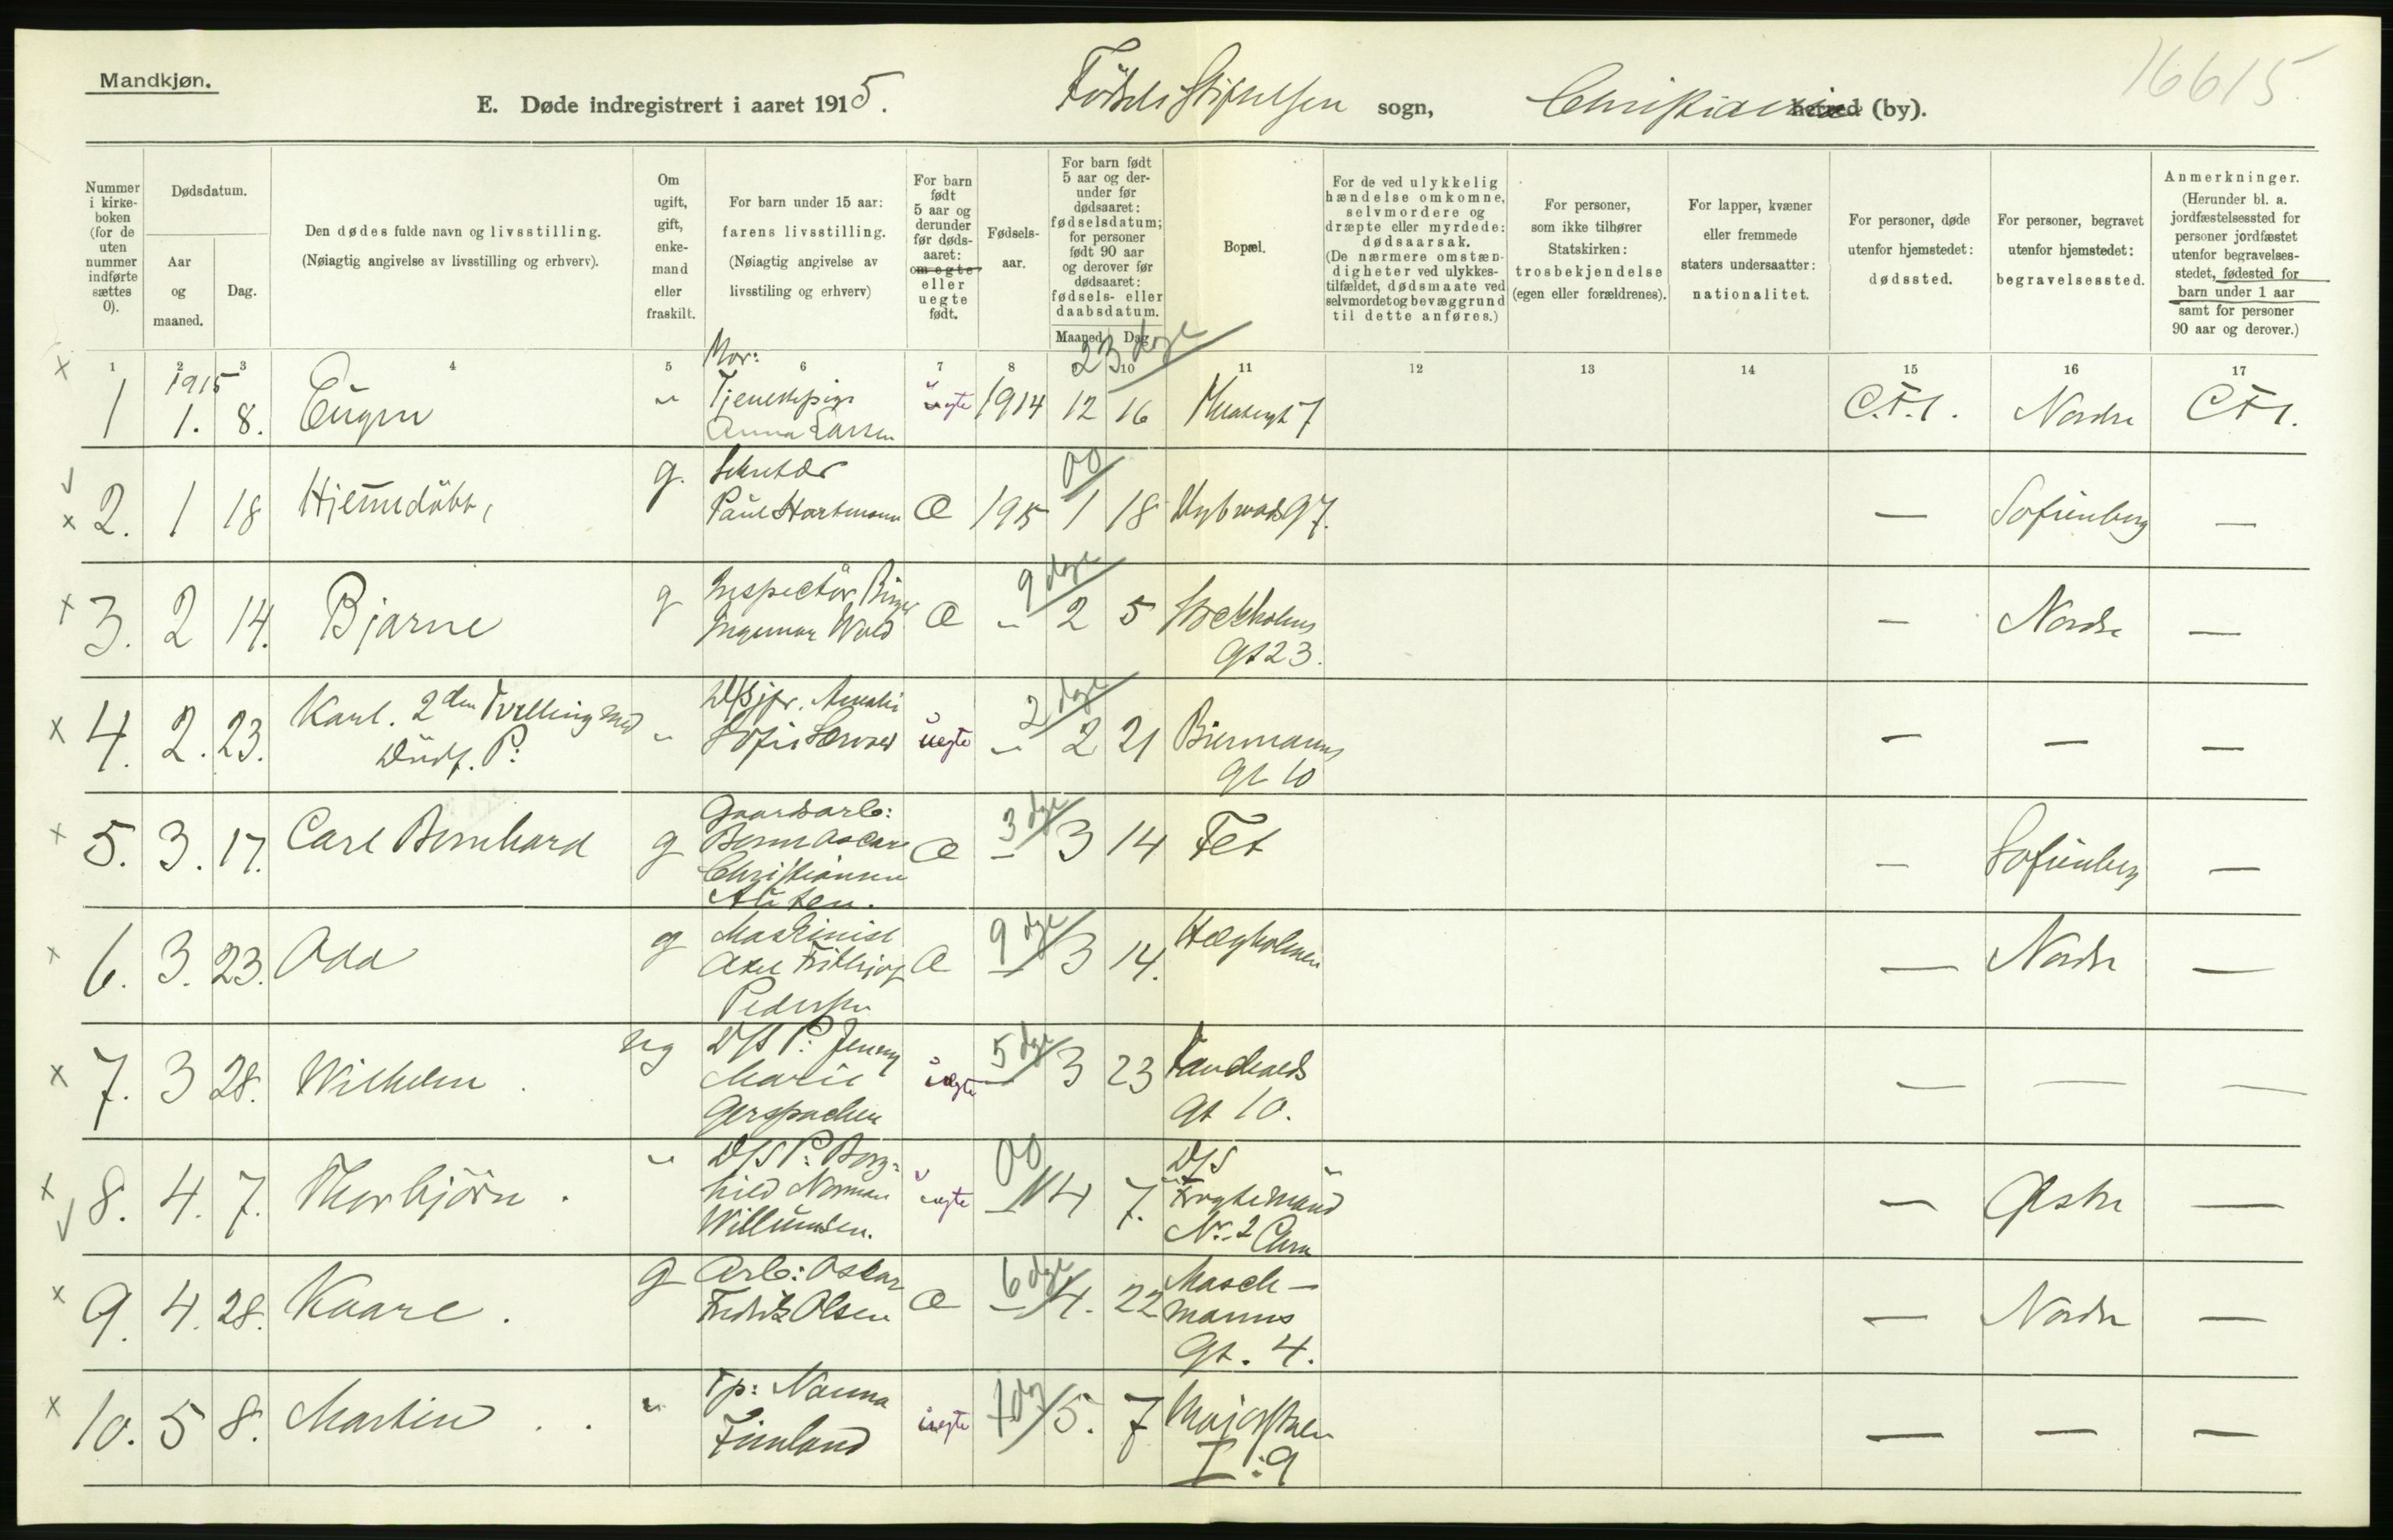 Mandkjøn.
16615
E. Døde indregistrert i aaret 1915. Fødselsstiftelsen sogn, Christiania herred (by).
Nummer i kirkeboken (for de uten nummer indførte sættes 0).
Dødsdatum.
Aar og maaned.
Dag.
Den dødes fulde navn og livsstilling.
(Nøiagtig angivelse av livsstilling og erhverv).
Om ugift, gift, enkemand eller fraskilt.
For barn under 15 aar: farens livsstilling.
(Nøiagtig angivelse av livsstiling og erhverv)
For barn født 5 aar og derunder før dødsaaret: om egte eller uegte født.
Fødselsaar.
For barn født 5 aar og derunder før dødsaaret: fødselsdatum; for personer født 90 aar og derover før dødsaaret: fødsels- eller daabsdatum.
Maaned Dag
Bopæl.
For de ved ulykkelig hændelse omkomne, selvmordere og dræpte eller myrdede: dødsaarsak.
(De nærmere omstændigheter ved ulykkestilfældet, dødsmaate ved selvmordet og bevæggrund til dette anføres.)
For personer, som ikke tilhører Statskirken: trosbekjendelse (egen eller forældrenes).
For lapper, kvæner eller fremmede staters undersaatter: nationalitet.
For personer, døde utenfor hjemstedet: dødssted.
For personer, begravet utenfor hjemstedet: begravelsessted.
Anmerkninger.
(Herunder bl. a. jordfæstelsessted for personer jordfæstet utenfor begravelsesstedet, fødested for barn under 1 aar samt for personer 90 aar og derover.)
1 2 3 4 5 6 7 8 10 11 12 13 14 15 16 17
1915 Mor: 23 dage
1 1. 8. Eugen " Tjenestepige Anna Larsen uegte 1914 12 16 7 C.F.1. Nordre CF1.
2. 1 18 Hjemmedøbt, g. Sekretær Paul Hartmann Æ 1915 00 1 18 97. — Sofienberg —
3. 2 14. Bjarne g Inspectør Ingemar Wold Æ " 9 dage 2 5 Stockholms gt 23. — Nordre —
4. 2. 23. Karl. 2den Tvilling med Dødf. P: " Amalie Sofie uegte " 2 dage 2 21 Biermanns gt 10 — — —
5. 3. 17. Carl Bernhard g Gaardsarb: Oscar Christiansen Æ — 3 dge 3 14 Fet — Sofienberg —
6. 3. 23. Oda g Maskinist Axel Fridthjof Pedersen Æ — 9 dge 3 14. Heggholmen — Nordre —
7. 3 28. Wilhelm. ug D/S P: Jenny Marie Gerspachen uegte — 5 dge 3 23 gt 10. — — —
8. 4. 7. Thorbjörn. " D/S P: Borghild Norman Willumsen. uegte — 00 4 7. D/S Nr. 2 Chra — Østre —
9. 4. 28. Kaare. g Arb: Oskar Fredrik Olsen Æ — 6 dge 4. 22 Maschmanns gt. 4. — Nordre —
10. 5 8. Martin . . " Tp: Nanna Finland uegte 1 dg 5. 7 Majorstuen I : 9 — — —